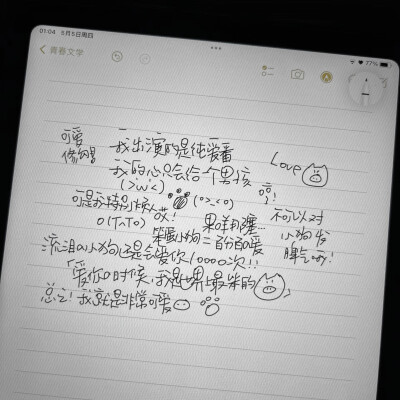 01:04 5月5日周四
77%
青春文学
我出演的是纯爱番
可爱
修狗!
Love
我的心只会给一个男孩
(>ω<)
(o>_<o)
哼!
可是我特别烦人哎!
o(T^T)o
果咩捏...
不可以对
小狗发
脾气呦!
笨蛋小狗 二百分可爱
流泪小狗还是会爱你10000次!!
「爱你的时候,我是世界上最笨的」
总之!我就是非常可爱